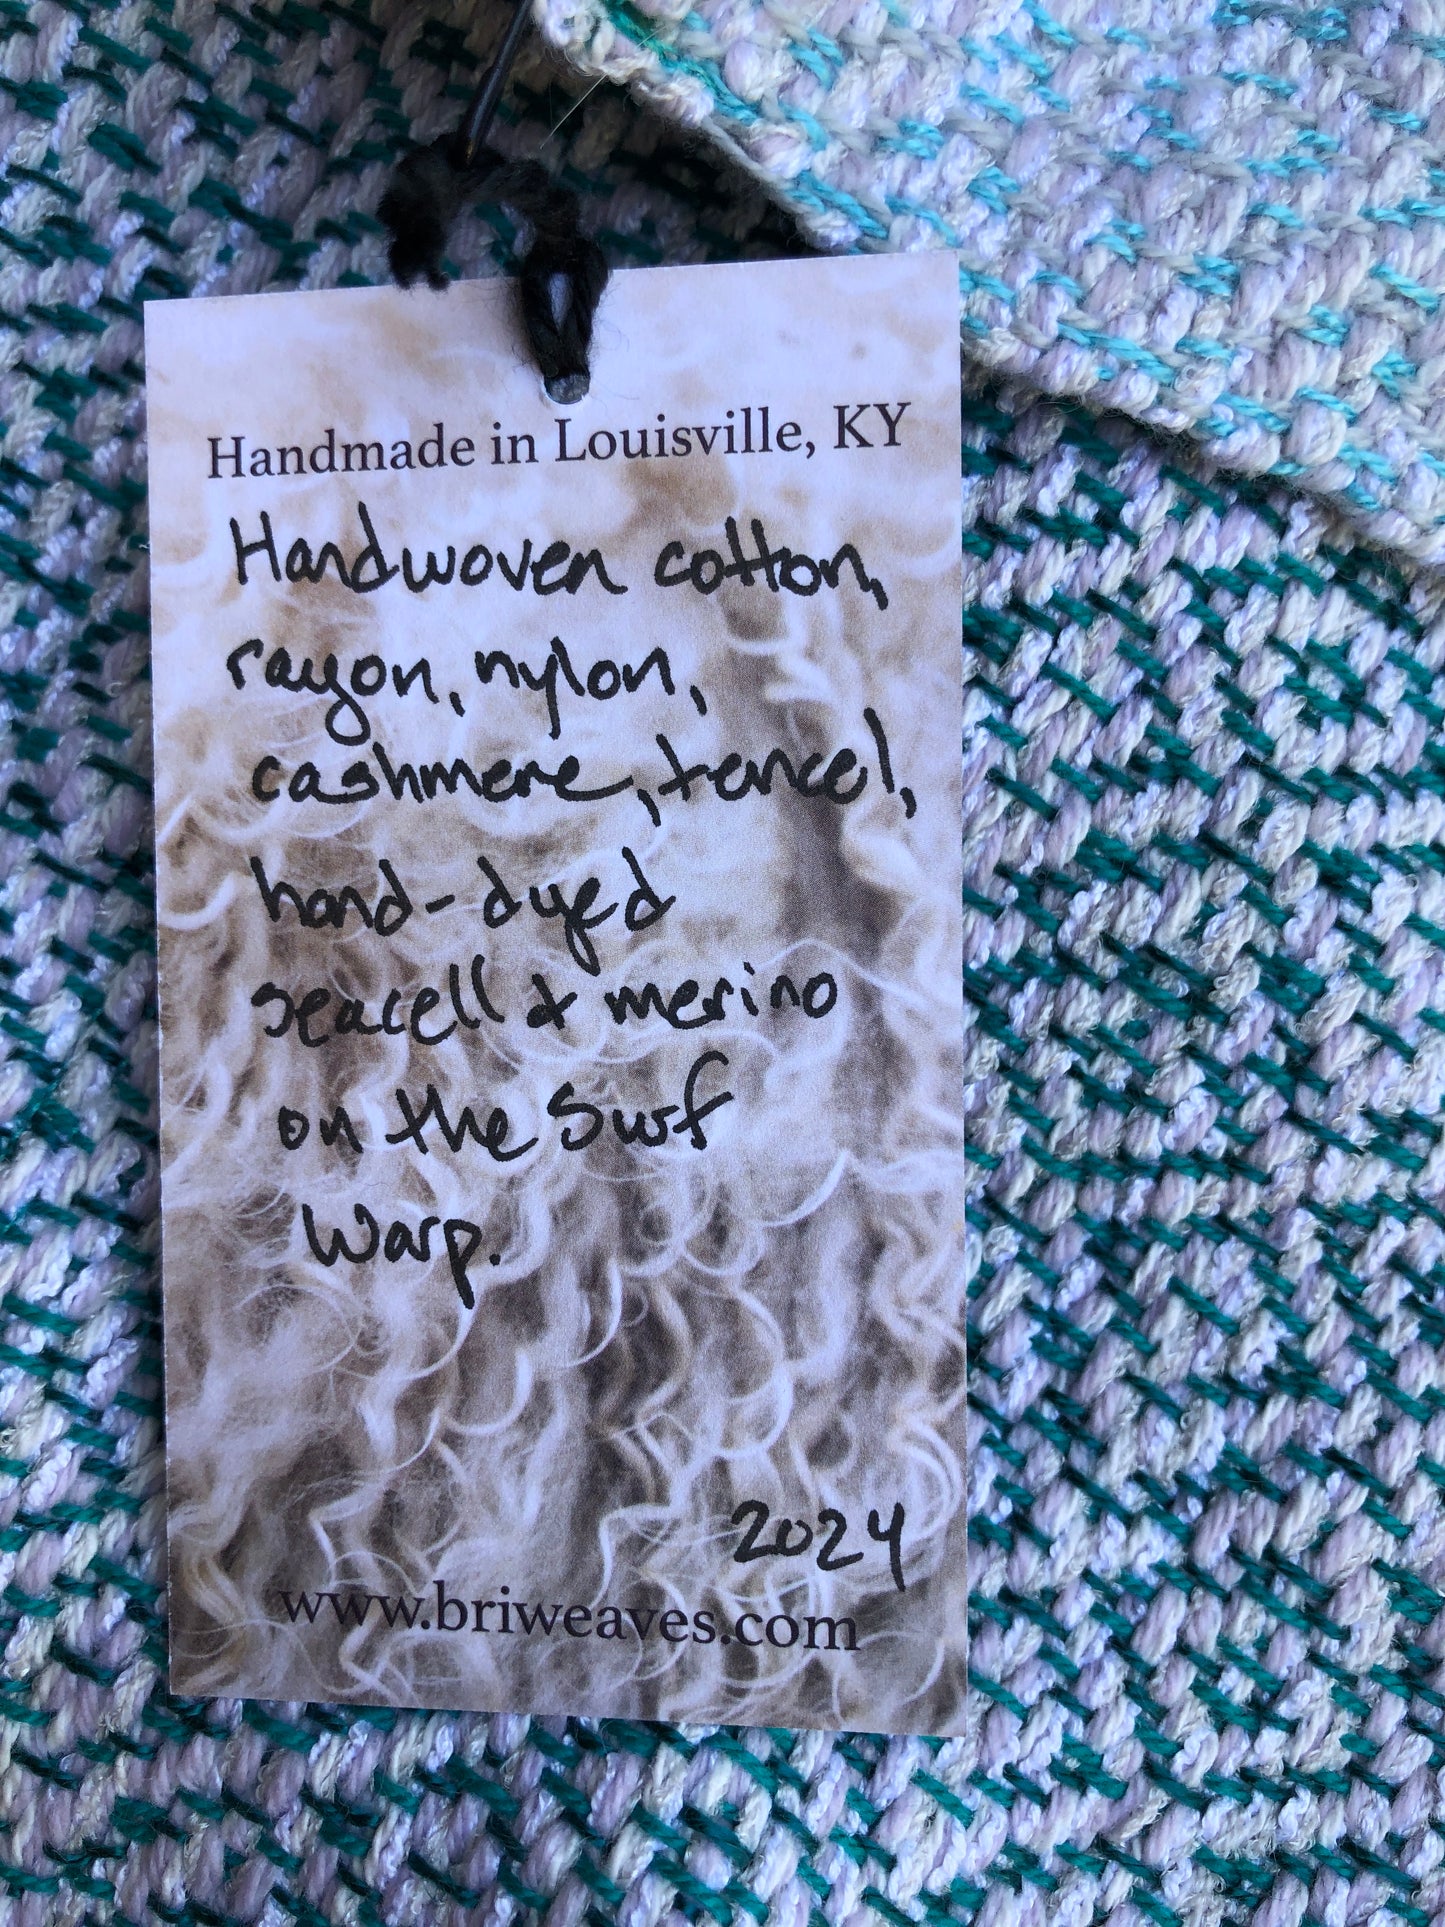 Handmade in Louisville, KY
Handwoven cotton,
rayon, nylon,
cashmere, tencel,
hand-dyed
seacell & merino
on the Surf
Warp.
2024
www.briweaves.com